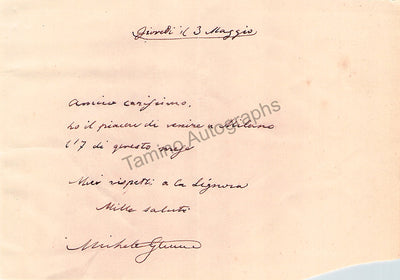 Giovedì il 3 Maggio
Amico carissimo,
ho il piacere di venire a Milano
il 7 di questo mese
Miei rispetti a la Signora
Mille saluti
Michele
Tamino Autographs